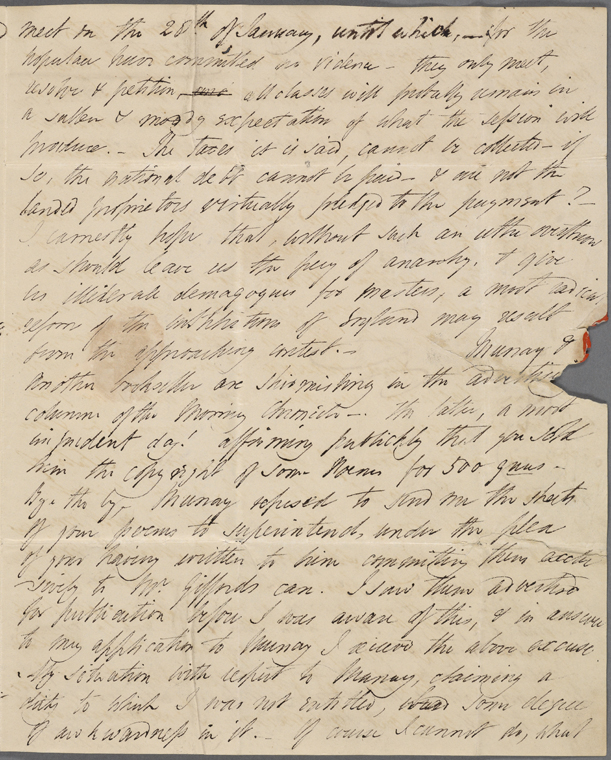 meet on the 28th of January, until which, — for the
populace have committed no violence — they only meet,
resolve & petition all classes will probably remain in
a sullen & moody expectation of what the session will
produce. — The taxes it is said, cannot be collected — if
so, the national debt cannot be paid — & are not the
landed proprietors virtually pledged to the payment? —
I earnestly hope that, without such an utter overthrow
as should leave us the prey of anarchy, & give
us illiterate demagogues for masters, a most radical
reform of the institutions of England may result
from the approaching contest. — Murray &
another bookseller are skirmishing in the advertising
columns of the Morning Chronicle —. the latter, a most
impudent dog! affirming publickly that you sold
him the copyright of some Poems for 500 guas —
By the by, Murray refused to send me the sheets
of your poems to superintend, under the plea
of your having written to him committing them exclu
sively to Mr. Giffords care. I saw them advertised
for publication before I was aware of this, & in answer
to my application to Murray I received the above excuse.
My situation with respect to Murray, claiming a
duty to which I was not entitled, had some degree
of awkwardness in it. — Of course I cannot do, what